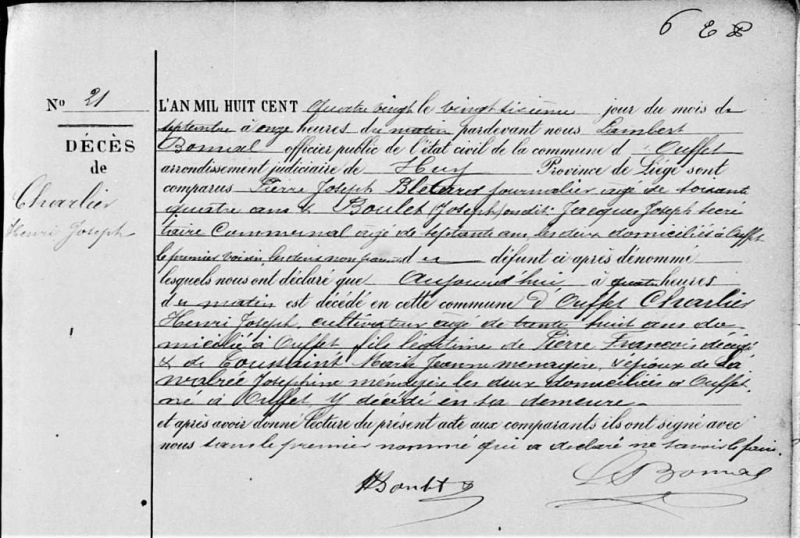 6 E
No 21
DÉCÈS
de
Charlier
Henri Joseph
L'AN MIL HUIT CENT quatre vingt le vingt sixième jour du mois de
septembre à onze heures du matin pardevant nous Lambert
Bonmal officier public de l'état civil de la commune d'Ouffet
arrondissement judiciaire de Huy Province de Liége sont
comparus Pierre Joseph journalier agé de soixante
quatre ans & Boulet (Joseph) ou dit Jacques Joseph secré
taire communal agé de septante ans, les deux domiciliés à Ouffet
le premier voisin, les deux non parents du défunt ci après dénommé
lesquels nous ont déclaré que Aujourd'hui à quatre heures
du matin est décédé en cette commune d'Ouffet Charlier
Henri Joseph, cultivateur agé de trente huit ans do
micilié à Ouffet fils légitime de Pierre François décédé
& de Toussaint Marie Jeanne menagère, époux de
Joséphine ménagère les deux domiciliées à Ouffet,
né à Ouffet y décédé en sa demeure.
et après avoir donné lecture du présent acte aux comparants ils ont signé avec
nous sauf le premier nommé qui a declaré ne savoir le faire.
Boulet
L Bonmal